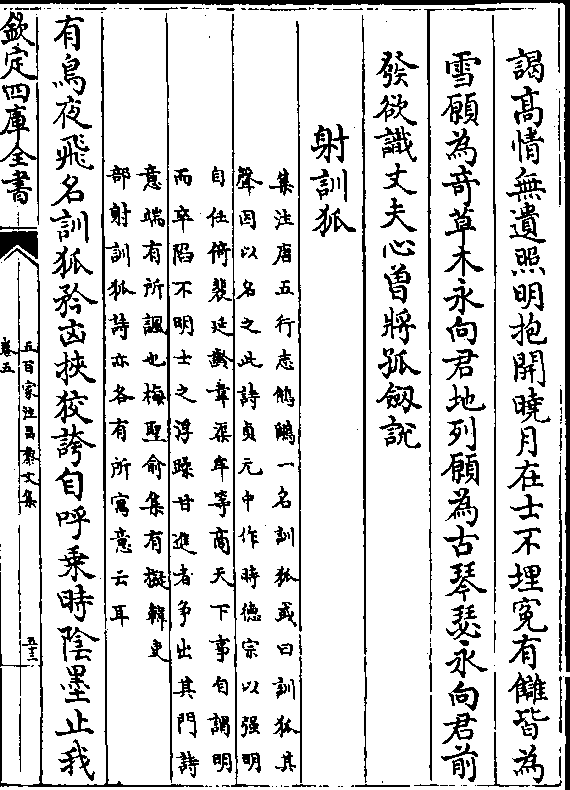 謁高情無遺照明抱開曉月在士不埋寃有讎皆為
雪願為竒草木永向君地列願為古琴瑟永向君前
發欲識丈夫心曽將孤劒說
射訓狐
集注唐五行志鵂鶹一名訓狐或曰訓狐其
聲因以名之此詩貞元中作時德宗以强明
自任倚裴延齡韋渠牟等商天下事自謂明
而卒陷不明士之浮躁甘進者爭出其門詩
意端有所諷也梅聖俞集有擬韓吏
部射訓狐詩亦各有所寓意云耳
有鳥夜飛名訓狐矜凶挾狡誇自呼乘時陰黑止我
欽定四庫全書
五百家注昌黎文集
卷五
五十三